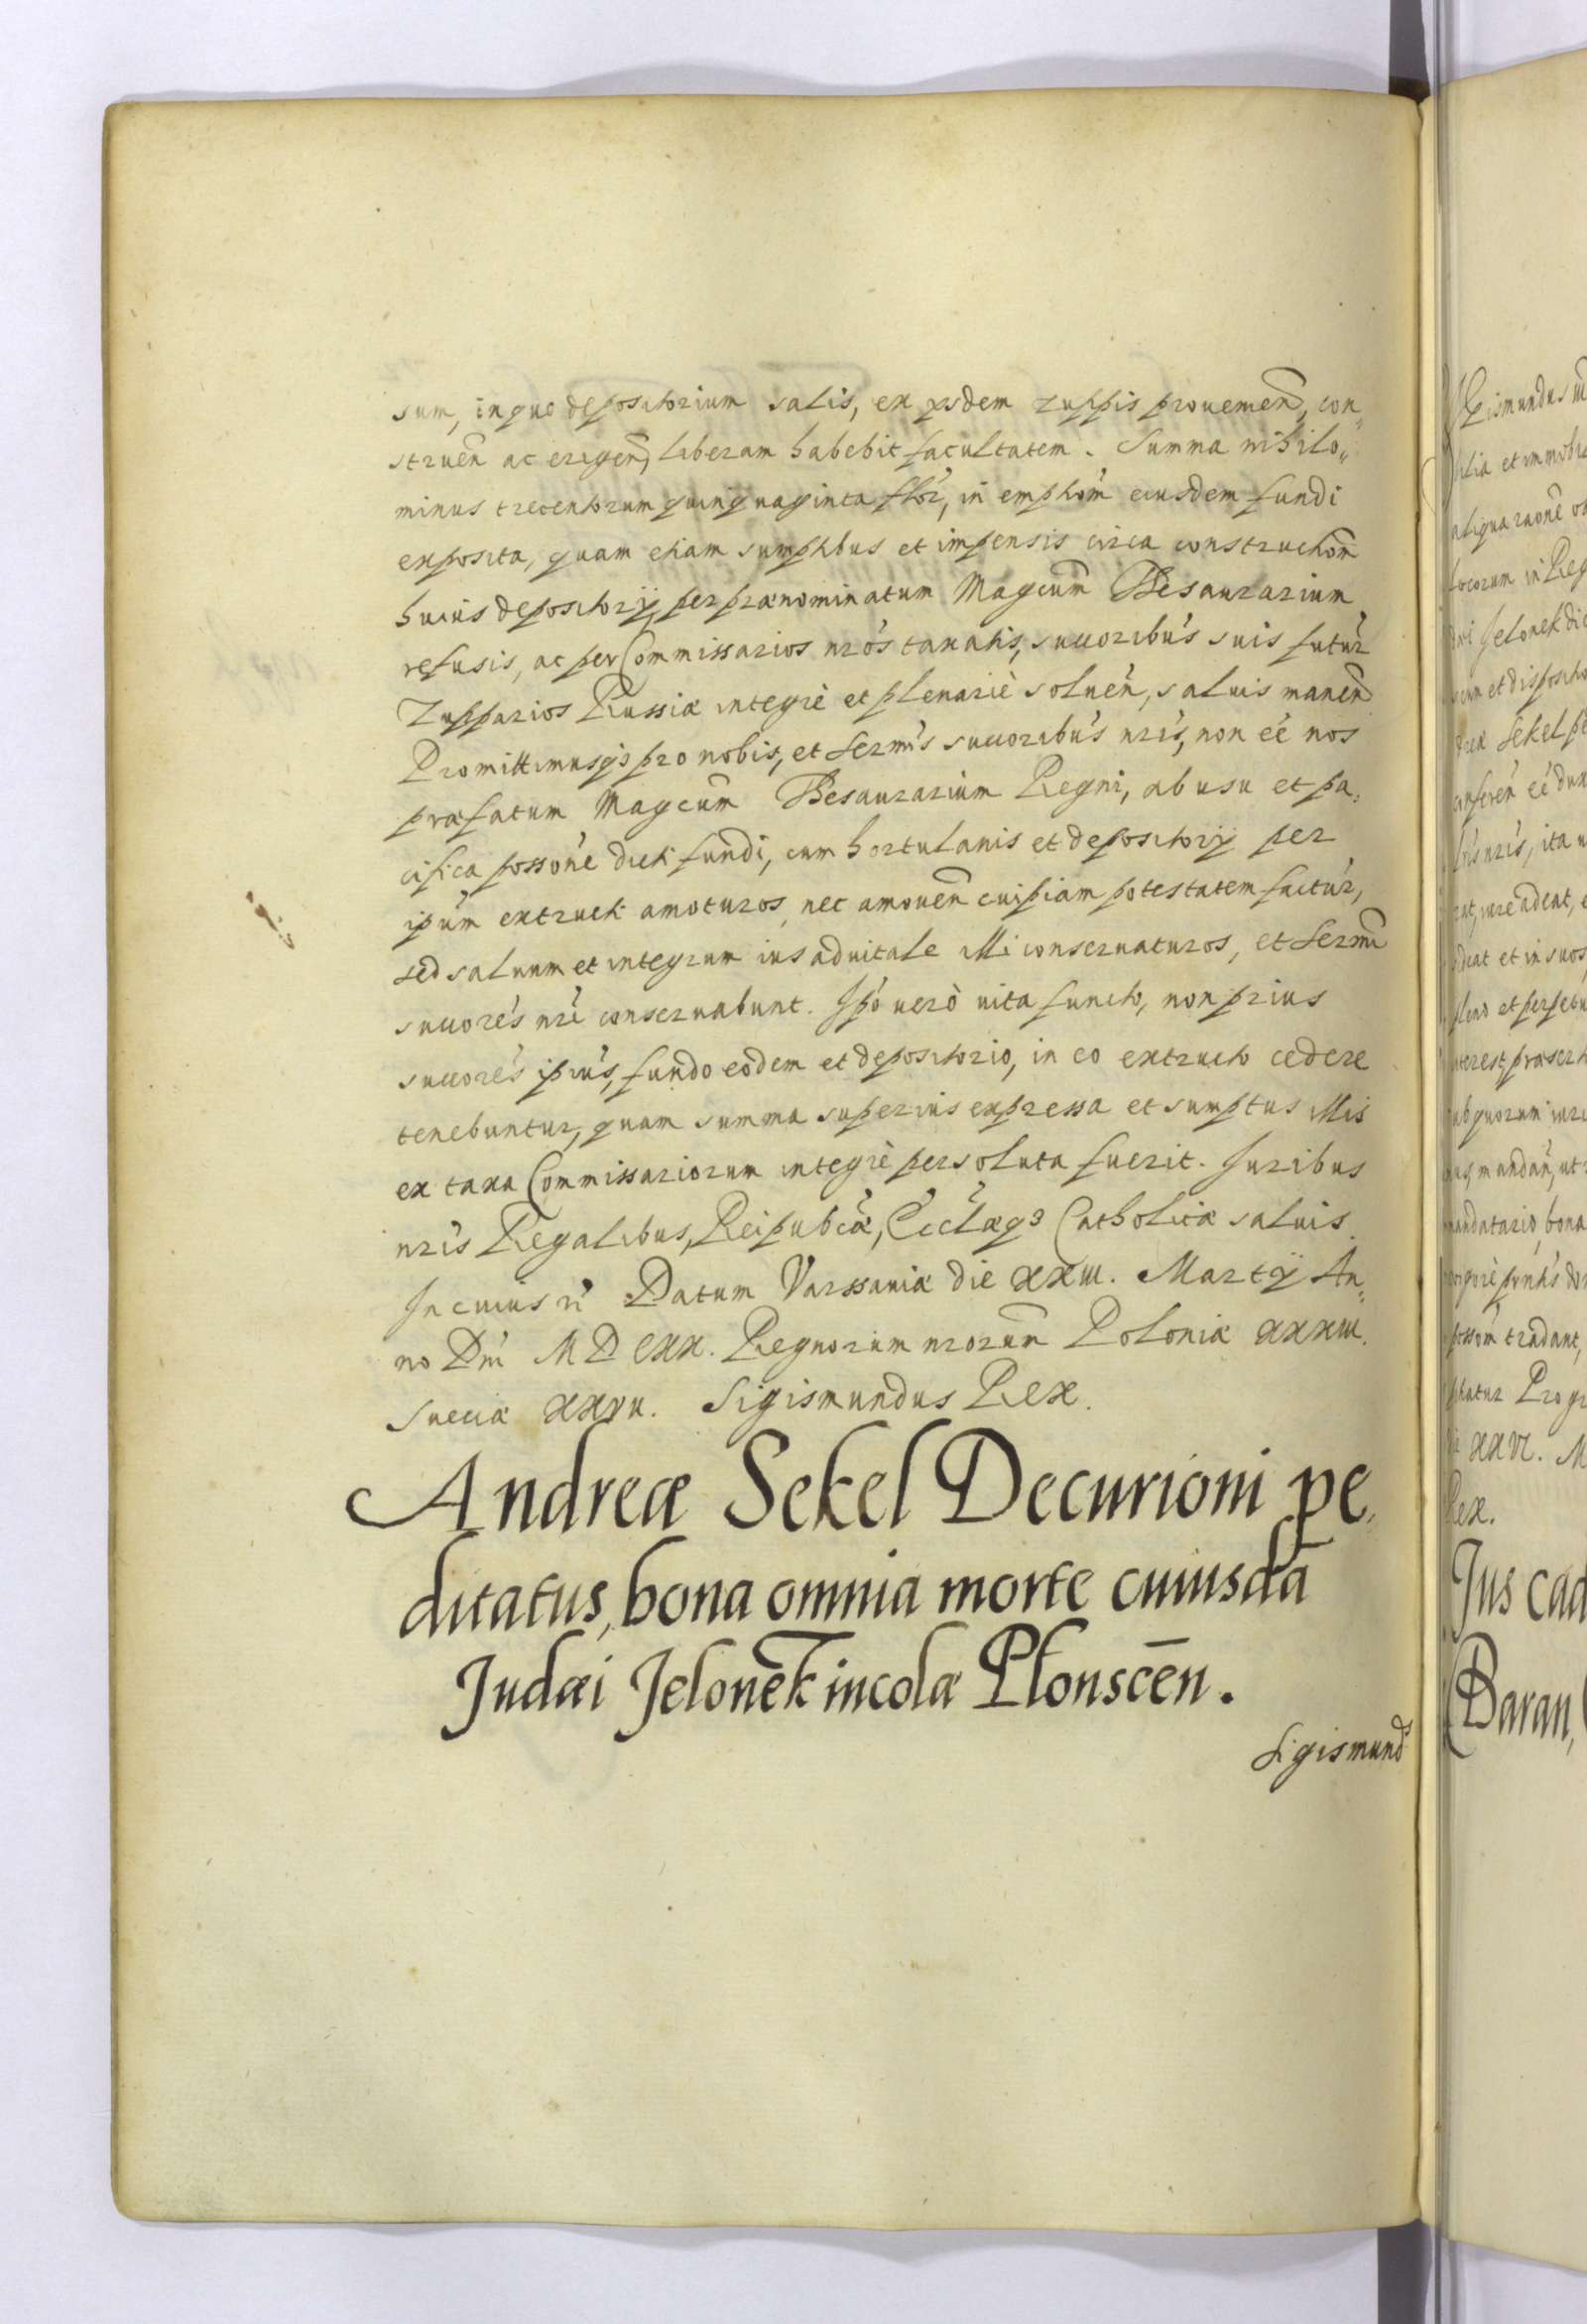 sum, in quo depositorium salis, ex ysdem zuppis prouenien̄, con„
struen̄ ac erigen̄, liberam habebit facultatem. Summa nihilo„
minus trecentorum quinquaginta flor̄, in emptiōm eiusdem fundi
exposita, quam etiam sumptibus et impensis circa constructiōm
huius depositorij per prænominatum Magcum̄ Thesaurarium
refusis, ac per Commissarios nrōs taxatis, succoribūs suis futūr
Zupparios Russiæ integrè et plenariè soluēn, saluis manen̄
Promittimusq̨ pro nobis, et Sermīs succoribūs nrīs, non eē nos
præfatum Magcum̄ Thesaurarium Regni, ab usu et pa„
cifica possōne dicti fundi, cum hortulanis et depositorij per
ipūm extructi amoturos, nec amouen̄ cuipiam potestatem factūr,
sed saluum et integrum ius aduitale illi conseruaturos, et Sermī
succorēs nrī conseruabunt. Ipō uerò uita functo, non prius
succorēs ipiūs, fundo eodem et depositorio, in eo extructo cedere
tenebuntur, quam summa superius expressa et sumptus illis
ex taxa Commissariorum integrè persoluta fuerit. Juribus
nrīs Regalibus, Reipubcǣ, Ecclæq3 Catholicæ saluis.
In cuius rī Datum Varssauiæ die XXIII. Martij An„
no Dnī MDCXX. Regnorum nrorum̄ Poloniæ XXXIII.
Sueciæ XXVII. Sigismundus Rex.
Andreæ Sekel Decurioni pe„
ditatus, bona omnia morte cuiusdā
Judæi Jelonek incolæ Płonscēn.
Sigismund9